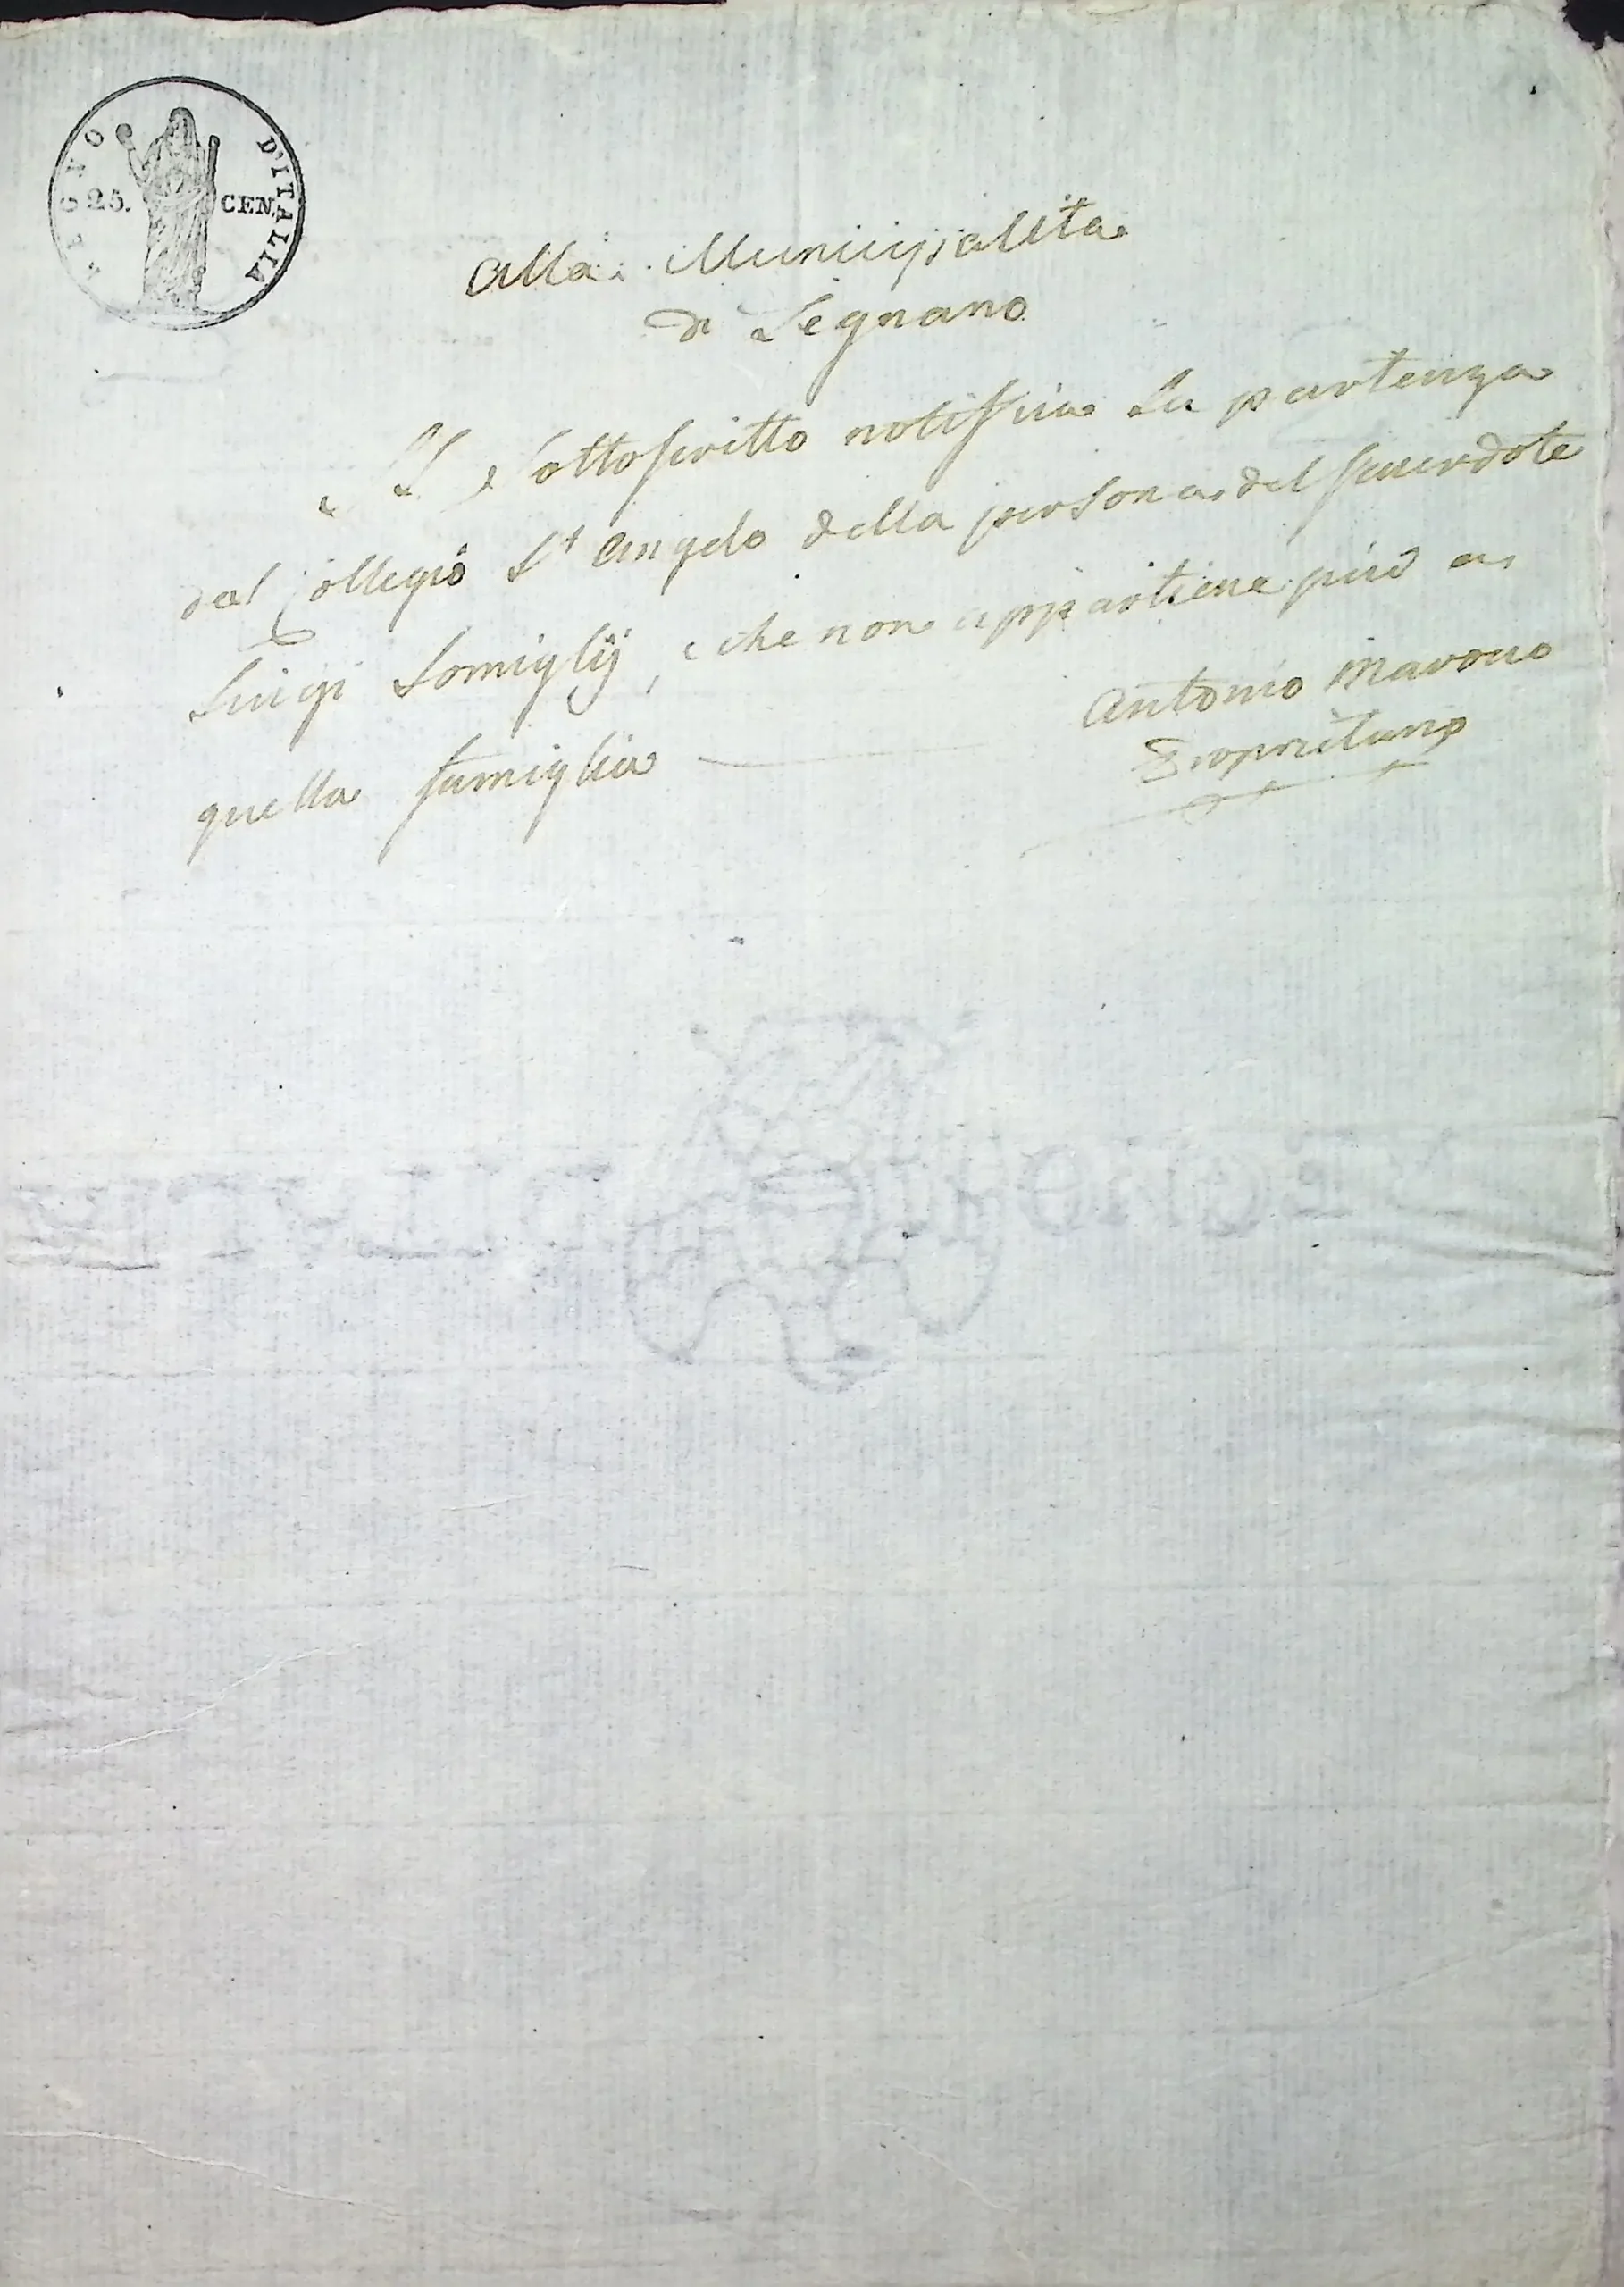 REGNO D'ITALIA
25. CEN.
Alla Municipalita
di Legnano
Il Sottoscritto notifica la partenza
dal Collegio St Angelo della persona del sacerdote
Luigi Somiglij, che non appartiene più a
quella famiglia
Antonio
Proprietario
REGNO D'ITALIA